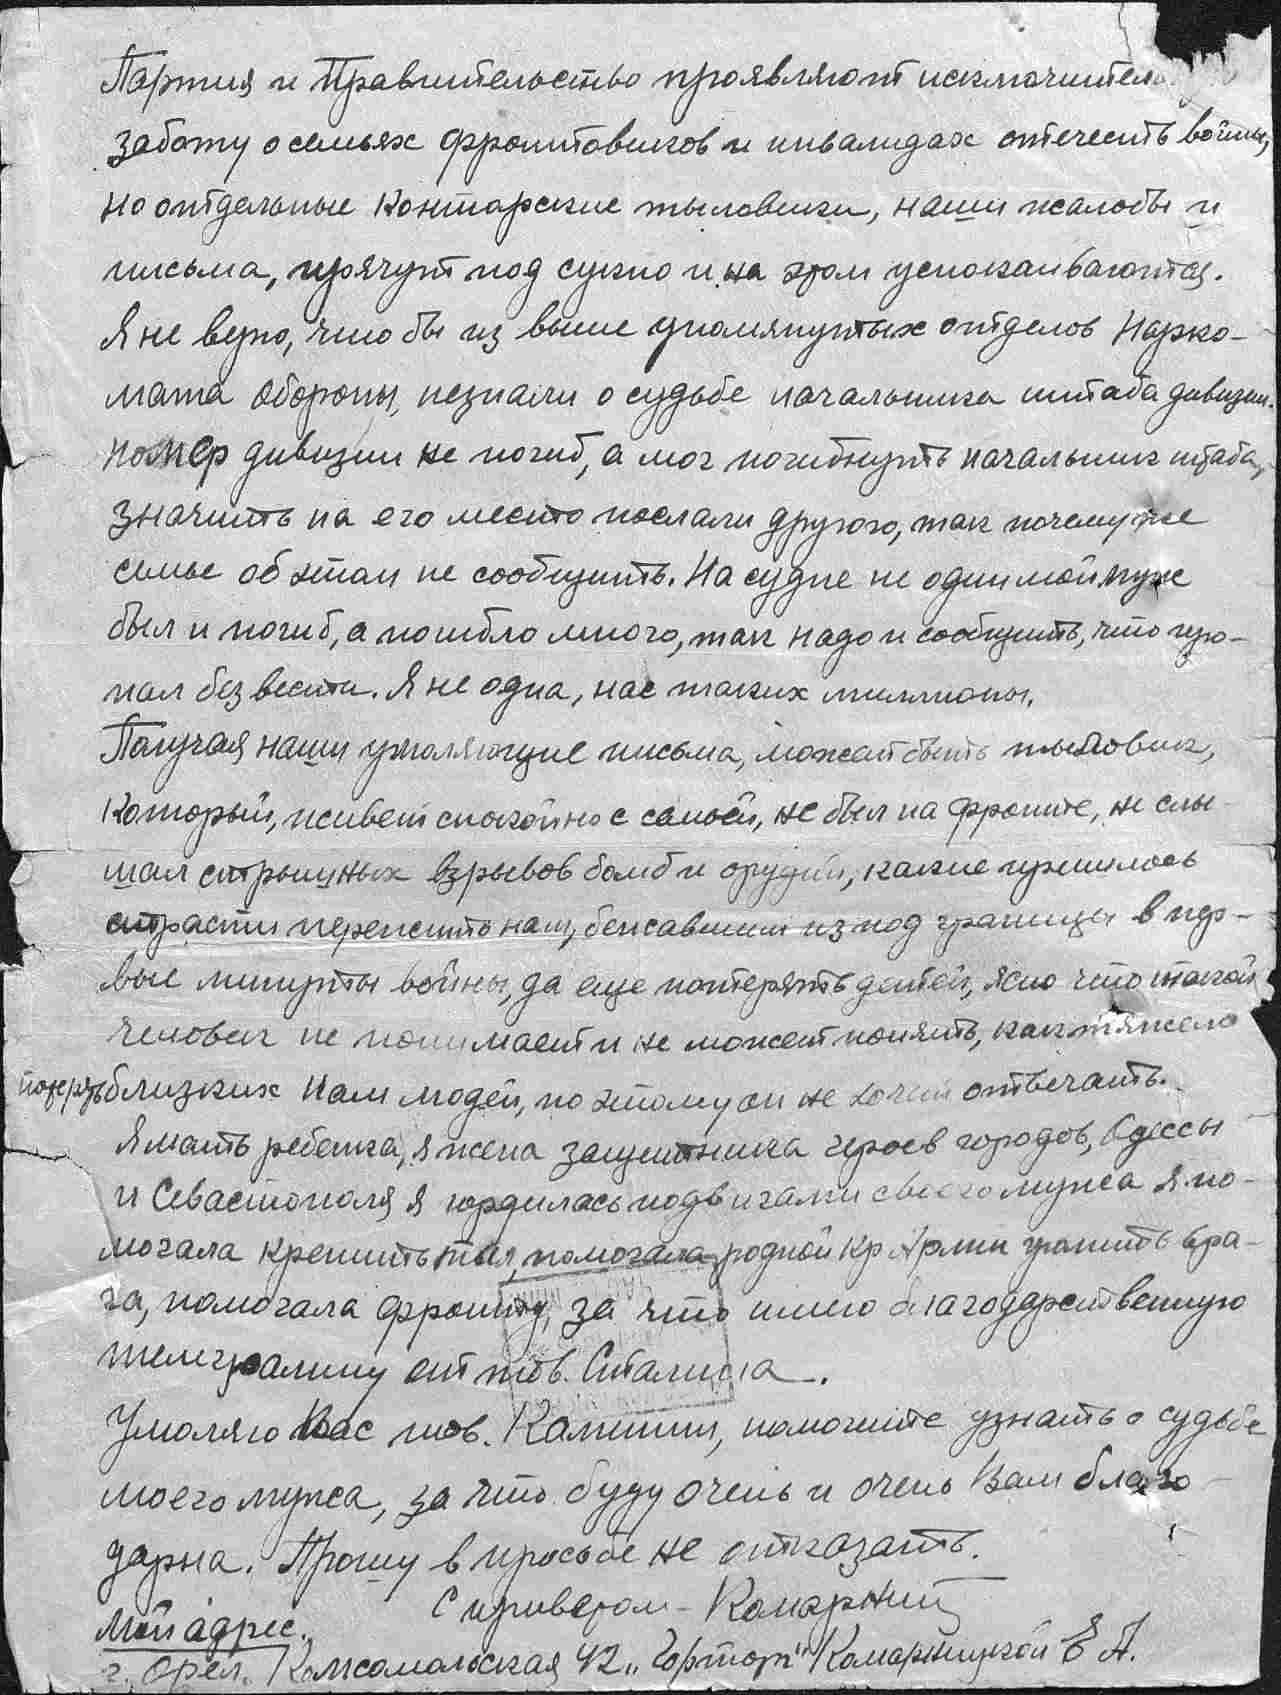 Партия и Правительство проявляют исключитель
заботу о семьях фронтовиков и инвалидах отечеств войны,
но отдельные конторские тыловики, наши жалобы и
письма, прячут под сукно и на этом успокаиваются.
Я не верю, что бы из выше упомянутых отделов Нарко-
мата Обороны, незнали о судьбе начальника штаба дивизии.
Номер дивизии не погиб, а мог погибнуть начальник штаба,
значить на его место послали другого, так почему же
семье об этом не сообщить. На судне не один мой муж
был и погиб, а погибло много, так надо и сообщить, что про-
пал без вести. Я не одна, нас таких миллионы.
Получая наши умоляющие письма, может быть тыловик,
который, живет спокойно с семьей, не был на фронте, не слы-
шал страшных взрывов бомб и орудий, какие пришлось
страсти пережить нам, бежавшим из под границы в пер-
вые минуты войны, да еще потерять детей, ясно что такой
человек не понимает и не может понять, как тяжело
потерять близких нам людей, по этому он не хочет отвечать.
Я мать ребенка, я жена защитника героев городов, Одессы
и Севастополя я гордилась подвигами своего мужа я по-
могала крепить тыл, помогала родной Кр Армии громить вра-
га, помогала фронту, за что имею благодарственную
телеграмму от тов. Сталина.
Умоляю Вас тов. Калинин, помогите узнать о судьбе
моего мужа, за что буду очень и очень Вам благо-
дарна. Прошу в просьбе не отказать.
С приветом – Комарниц
Мой адрес.
г. Орел. Комсомольская 42 „Горторг" Комарницкой Е А.